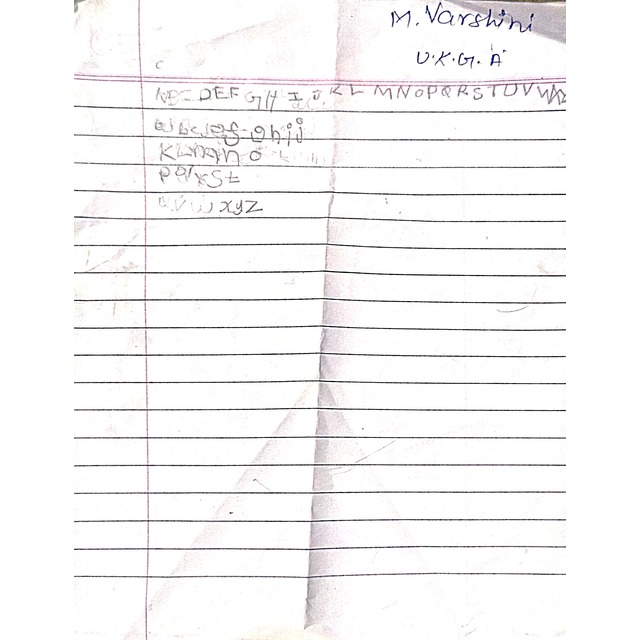 M. Varshini
U.K.G. A
c
ABCDEFGHIJKLMNOPQRSTUVW
abcdefghij
klmno
pqrst
uvwxyz